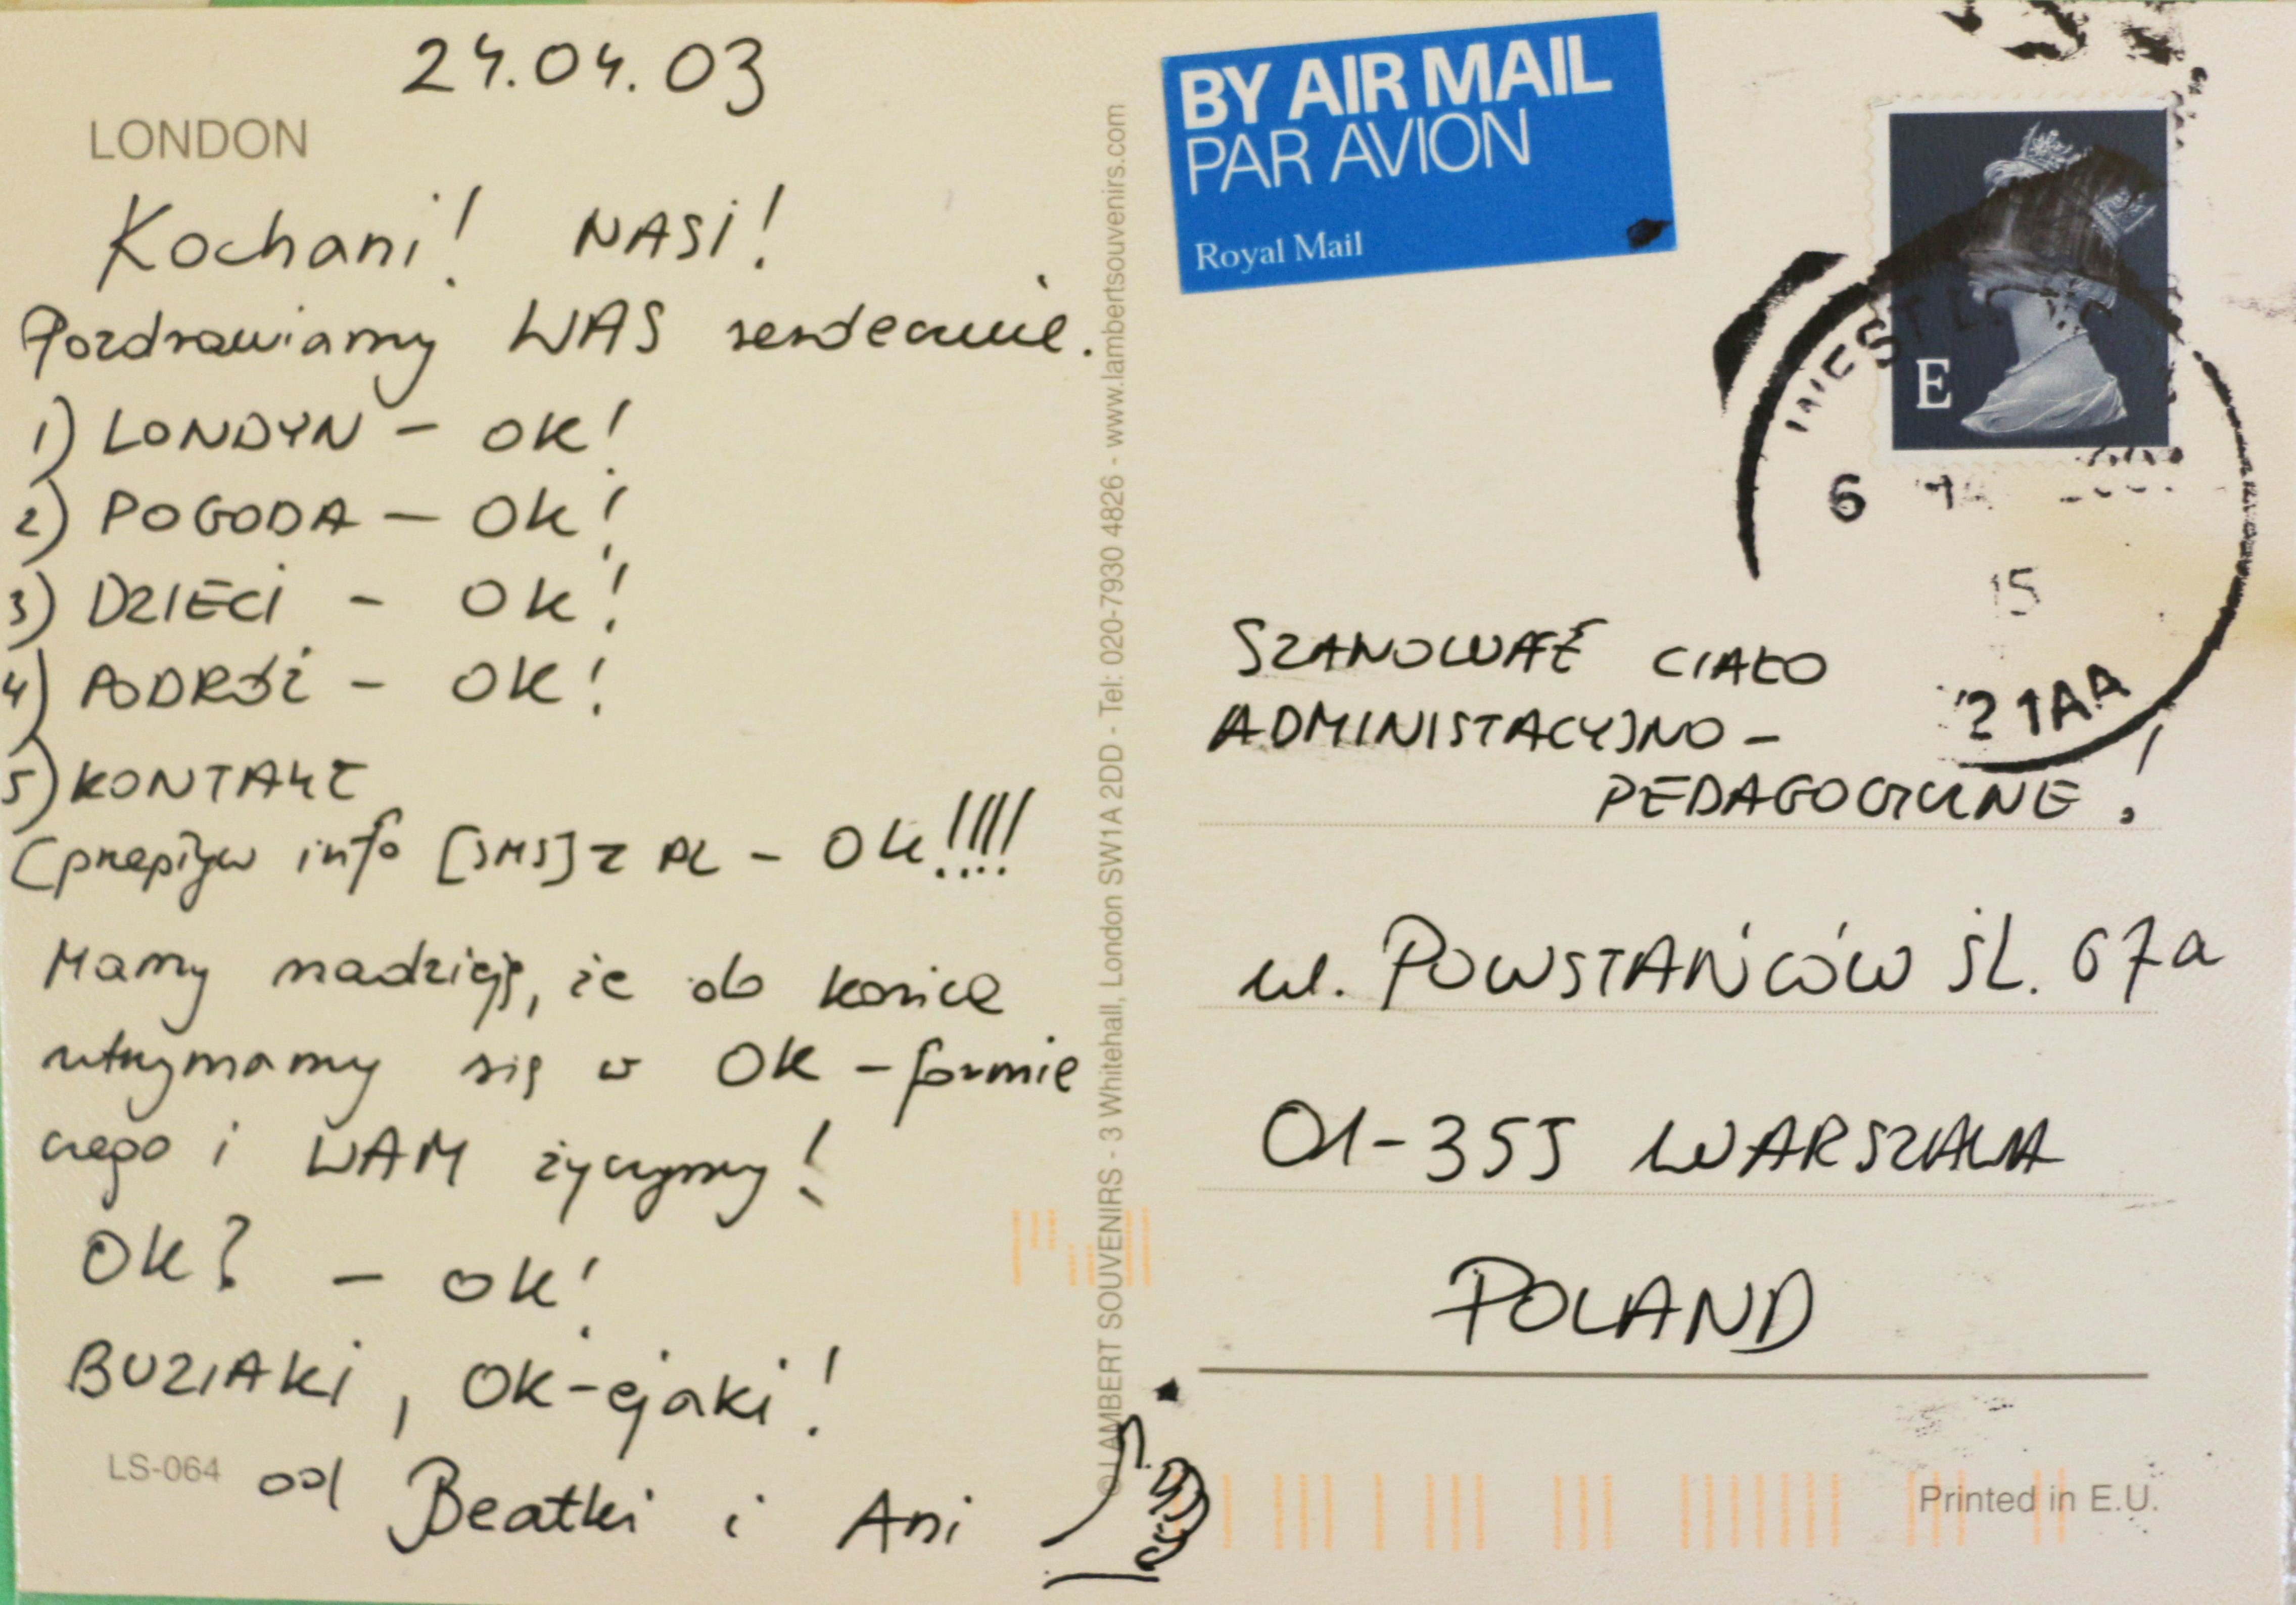 24.04.03
LONDON
Kochani! NASI!
Pozdrawiamy WAS serdecznie.
1) LONDYN - OK!
2) POGODA - OK!
3) DZIECI - OK!
4) PODRÓŻ - OK!
5) KONTAKT
(przepływ info [SMS] z PL - OK!!!!
Mamy nadzieję, że do końca
utrzymamy się w OK - formie
czego i WAM życzymy!
OK? - OK!
BUZIAKI, OK-ejaki!
LS-064
od Beatki i Ani
© LAMBERT SOUVENIRS - 3 Whitehall, London SW1A 2DD - Tel: 020-7930 4826 - www.lambertsouvenirs.com
BY AIR MAIL
PAR AVION
Royal Mail
E
WEST
6
15
21AA
SZANOWNE CIAŁO
ADMINISTACYJNO-
PEDAGOGICZNE!
ul. POWSTAŃCÓW ŚL. 67a
01-355 WARSZAWA
POLAND
Printed in E.U.